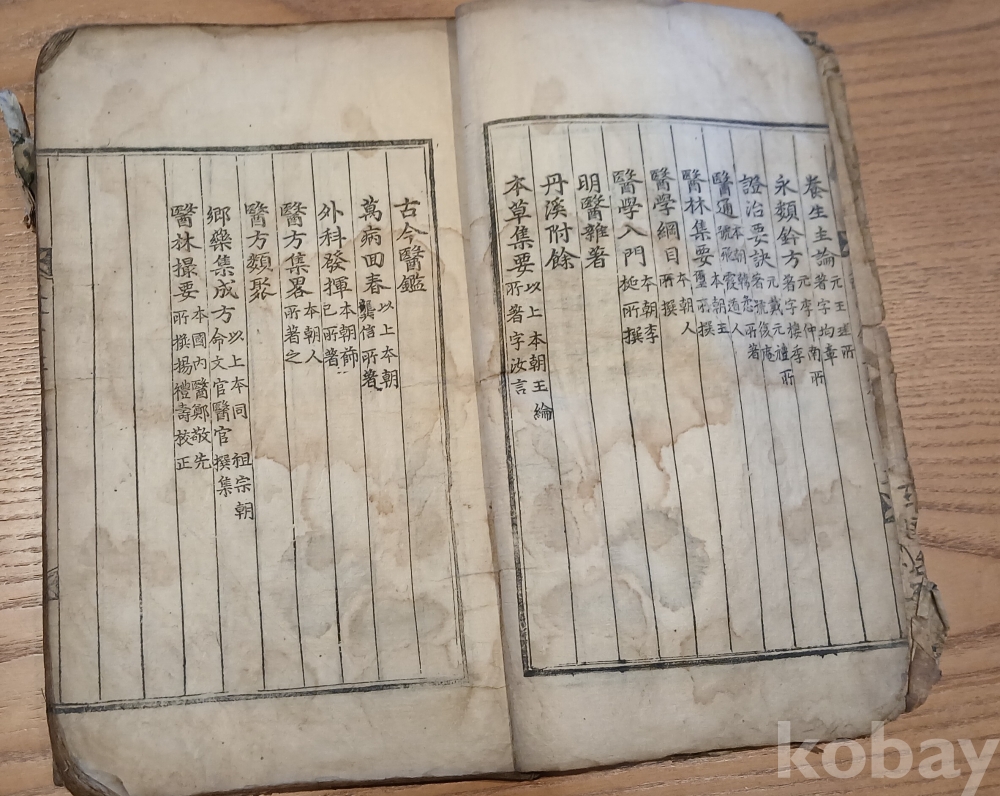 養生主論 元王珪所著字均章
永類鈐方 元李仲南所著字棲季
證治要訣 元戴元禮所著號復菴
醫通 本朝韓悉所著號飛霞道人
醫林集要 本朝王璽所撰
醫學綱目 本朝人所撰
醫學入門 本朝李梴所撰
明醫雜著
丹溪附餘
本草集要 以上本朝王綸所著字汝言
古今醫鑑
萬病回春 以上本朝龔信所著
外科發揮 本朝薛己所著
醫方集畧 本朝人所著之
醫方類聚
鄕藥集成方 以上本同 祖宗朝命文官醫官撰集
醫林撮要 本國內醫鄭敬先所撰揚禮壽校正
kobay